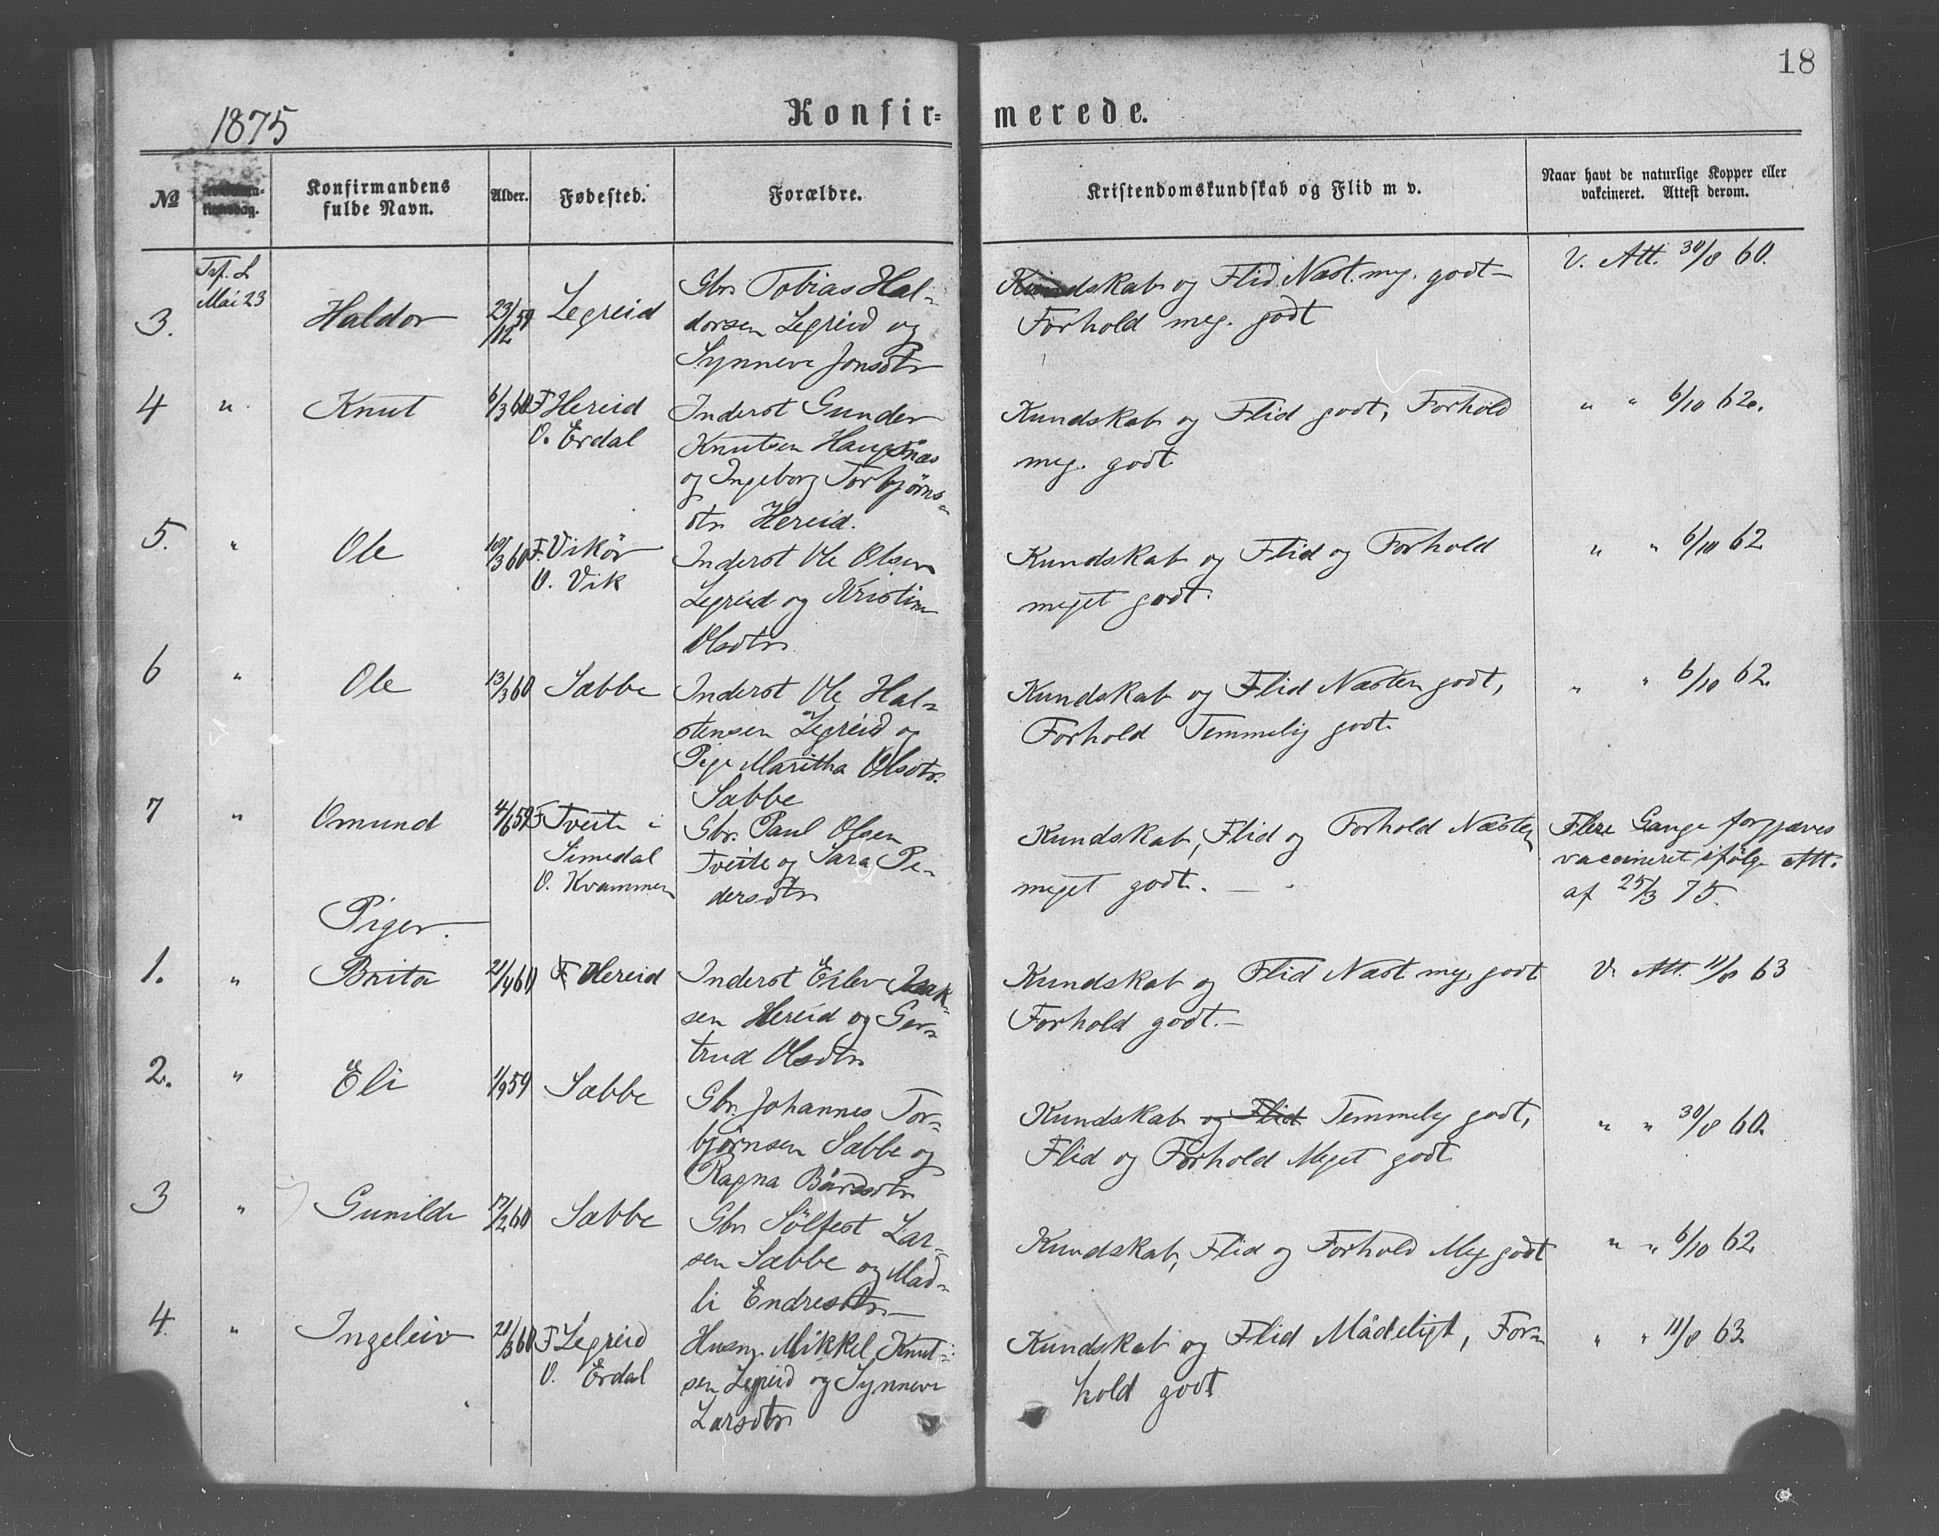 18
1875
Konfirmerede.
№
Konfirmandens fulde Navn.
Alder.
Fødested.
Forældre.
Kristendomskundskab og Flid m v.
Naar havt de naturlige Kopper eller vakcineret. Attest derom.
Mai 23
3.
Haldor
23/12 59
Legreid
Gbr. Tobias Hal-
dorsen Legreid og
Synneve Jonsdtr
Kundskab og Flid Næst. meg. godt
Forhold meg. godt
V. Att. 30/8 60.
4
"
Knut
6/3 60
F Hereid
O. Erdal
Inderst Gunder
Knutsen Haugsnæs
og Ingeborg Torbjørns-
dtr Hereid.
Kundskab og Flid godt, Forhold
meg. godt
" " 6/10 62.
5.
"
Ole
10/3 60
F. Vikør
O. Vik
Inderst Ole Olsen
Legreid og Kristine
Olsdtr
Kundskab og Flid og Forhold
meget godt.
" " 6/10 62
6
"
Ole
13/3 60
Sæbbe
Inderst Ole Hal-
stensen Legreid og
Pige Maritha Olsdtr.
Sæbbe
Kundskab og Flid Næsten godt,
Forhold Temmelig godt
" " 6/10 62.
7
"
Omund
4/6 59
F Tveite i
Simedal
O. Kvammen
Gbr. Paul Olsen
Tveite og Sara Pe-
dersdtr
Kundskab, Flid og Forhold Næsten
meget godt.
Flere Gange forgjæves
vaccineret ifølge Att.
af 25/3 75.
Piger.
1.
"
Brita
21/4 60
F Hereid
Inderst Eilev Isak-
sen Hereid og Ger-
trud Olsdtr
Kundskab og Flid Næst meg. godt
Forhold godt.
V. Att. 11/8 63
2.
"
Eli
1/9 59
Sæbbe
Gbr. Johannes Tor-
bjørnsen Sæbbe og
Ragna Bårdsdtr
Kundskab og Flid Temmelig godt,
Flid og Forhold Meget godt
" " 30/8 60.
3
"
Gunilde
17/2 60
Sæbbe
Gbr Sølfest Lar-
sen Sæbbe og Mad-
li Endresdtr
Kundskab, Flid og Forhold Meg godt
" " 6/10 62
4.
"
Ingeleiv
20/3 60
F Legreid
O. Erdal
Husm. Mikkel Knut-
sen Legreid og Synneve
Larsdtr
Kundskab og Flid Mådeligt, For-
hold godt
" " 11/8 63